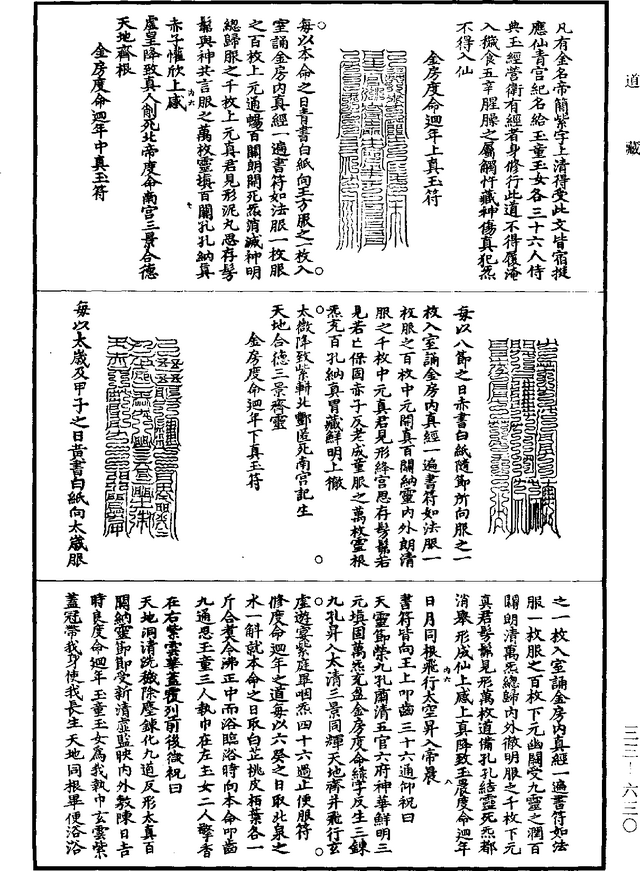 道藏
凡有金名帝簡紫字上清得受此文皆宿挺
應仙青宮紀名給玉童玉女各三十六人侍
典玉經營衛有經者身修行此道不得履淹
入穢食五辛腥臊之屬觸忤藏神傷真犯炁
不得入仙
金房度命迴年上真玉符
每以本命之日青書白紙向王方服之一枚入
室誦金房內真經一遍書符如法服一枚服
之百枚上元通暢百關朗開死炁消滅神明
總歸服之千枚上元真君見形泥丸思存髣
髴與神共言服之萬枚靈填百關孔孔納真
赤子懽欣上感
虛皇降致真人削死北帝度命南宮三景合德
天地齊根
金房度命迴年中真玉符
每以八節之日赤書白紙隨節所向服之一
枚入室誦金房內真經一遍書符如法服一
枚服之百枚中元開真百關納靈內外朗清
服之千枚中元真君見形絳宮思存髣髴若
見若亡保固赤子反老成童服之萬枚靈根
炁充百孔納真胃藏鮮明上徹
太微降致紫軿北酆落死南宮記生
天地合德三景齊靈
金房度命迴年下真玉符
每以太歲及甲子之日黃書白紙向太歲服
之一枚入室誦金房內真經一遍書符如法
服一枚服之百枚下元幽關受九靈之潤百
關朗清萬炁總歸內外徹明服之千枚下元
真君髣髴見形萬枚道備孔孔結靈死炁都
消舉形成仙上感上真降致玉晨度命迴年
日月同根飛行太空昇入帝晨
書符皆向王上叩齒三十六通仰祝曰
天靈節榮九孔爾清五官六府神華鮮明三
元填固萬炁充盈金房度命絳字反生三鍊
九孔昇入太清三景同輝天地齊并飛行玄
虛遊宴紫庭畢咽炁四十六過止便服符
修度命迴年之道每以六癸之日取北泉之
水一斛就本命之日取白芷桃皮栢葉各一
斤合煑令沸正中而浴臨浴時向本命叩齒
九通思玉童三人執巾在左玉女二人擎香
在右紫雲華蓋覆列前後微祝曰
天地洞清洗穢除塵鍊化九道反形太真百
關納靈節節受新清虛監映內外敷陳日吉
時良度命迴年玉童玉女為我執巾玄雲紫
蓋冠帶我身使我長生天地同根畢便浴浴
三三—六三〇